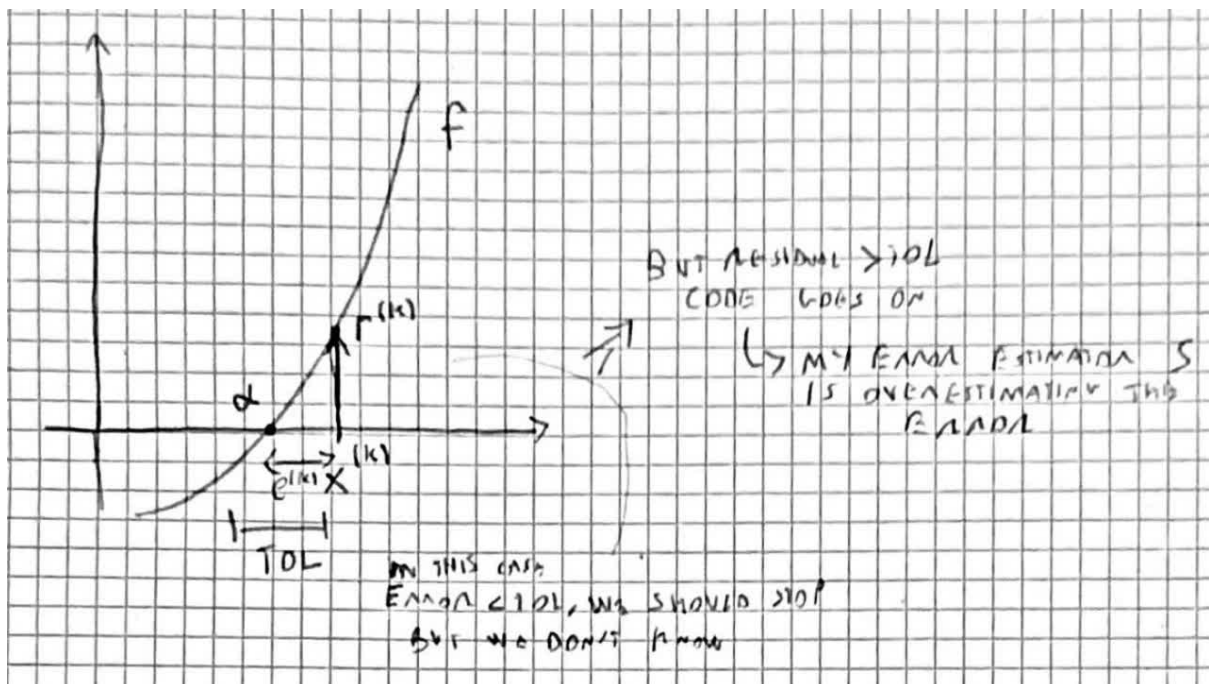 f
r^(k)
α
e^(k) x^(k)
TOL
IN THIS CASE
ERROR < TOL, WE SHOULD STOP
BUT WE DON'T KNOW
BUT RESIDUAL > TOL
CODE GOES ON
↳ MY ERROR ESTIMATOR S
IS OVERESTIMATING THE
ERROR